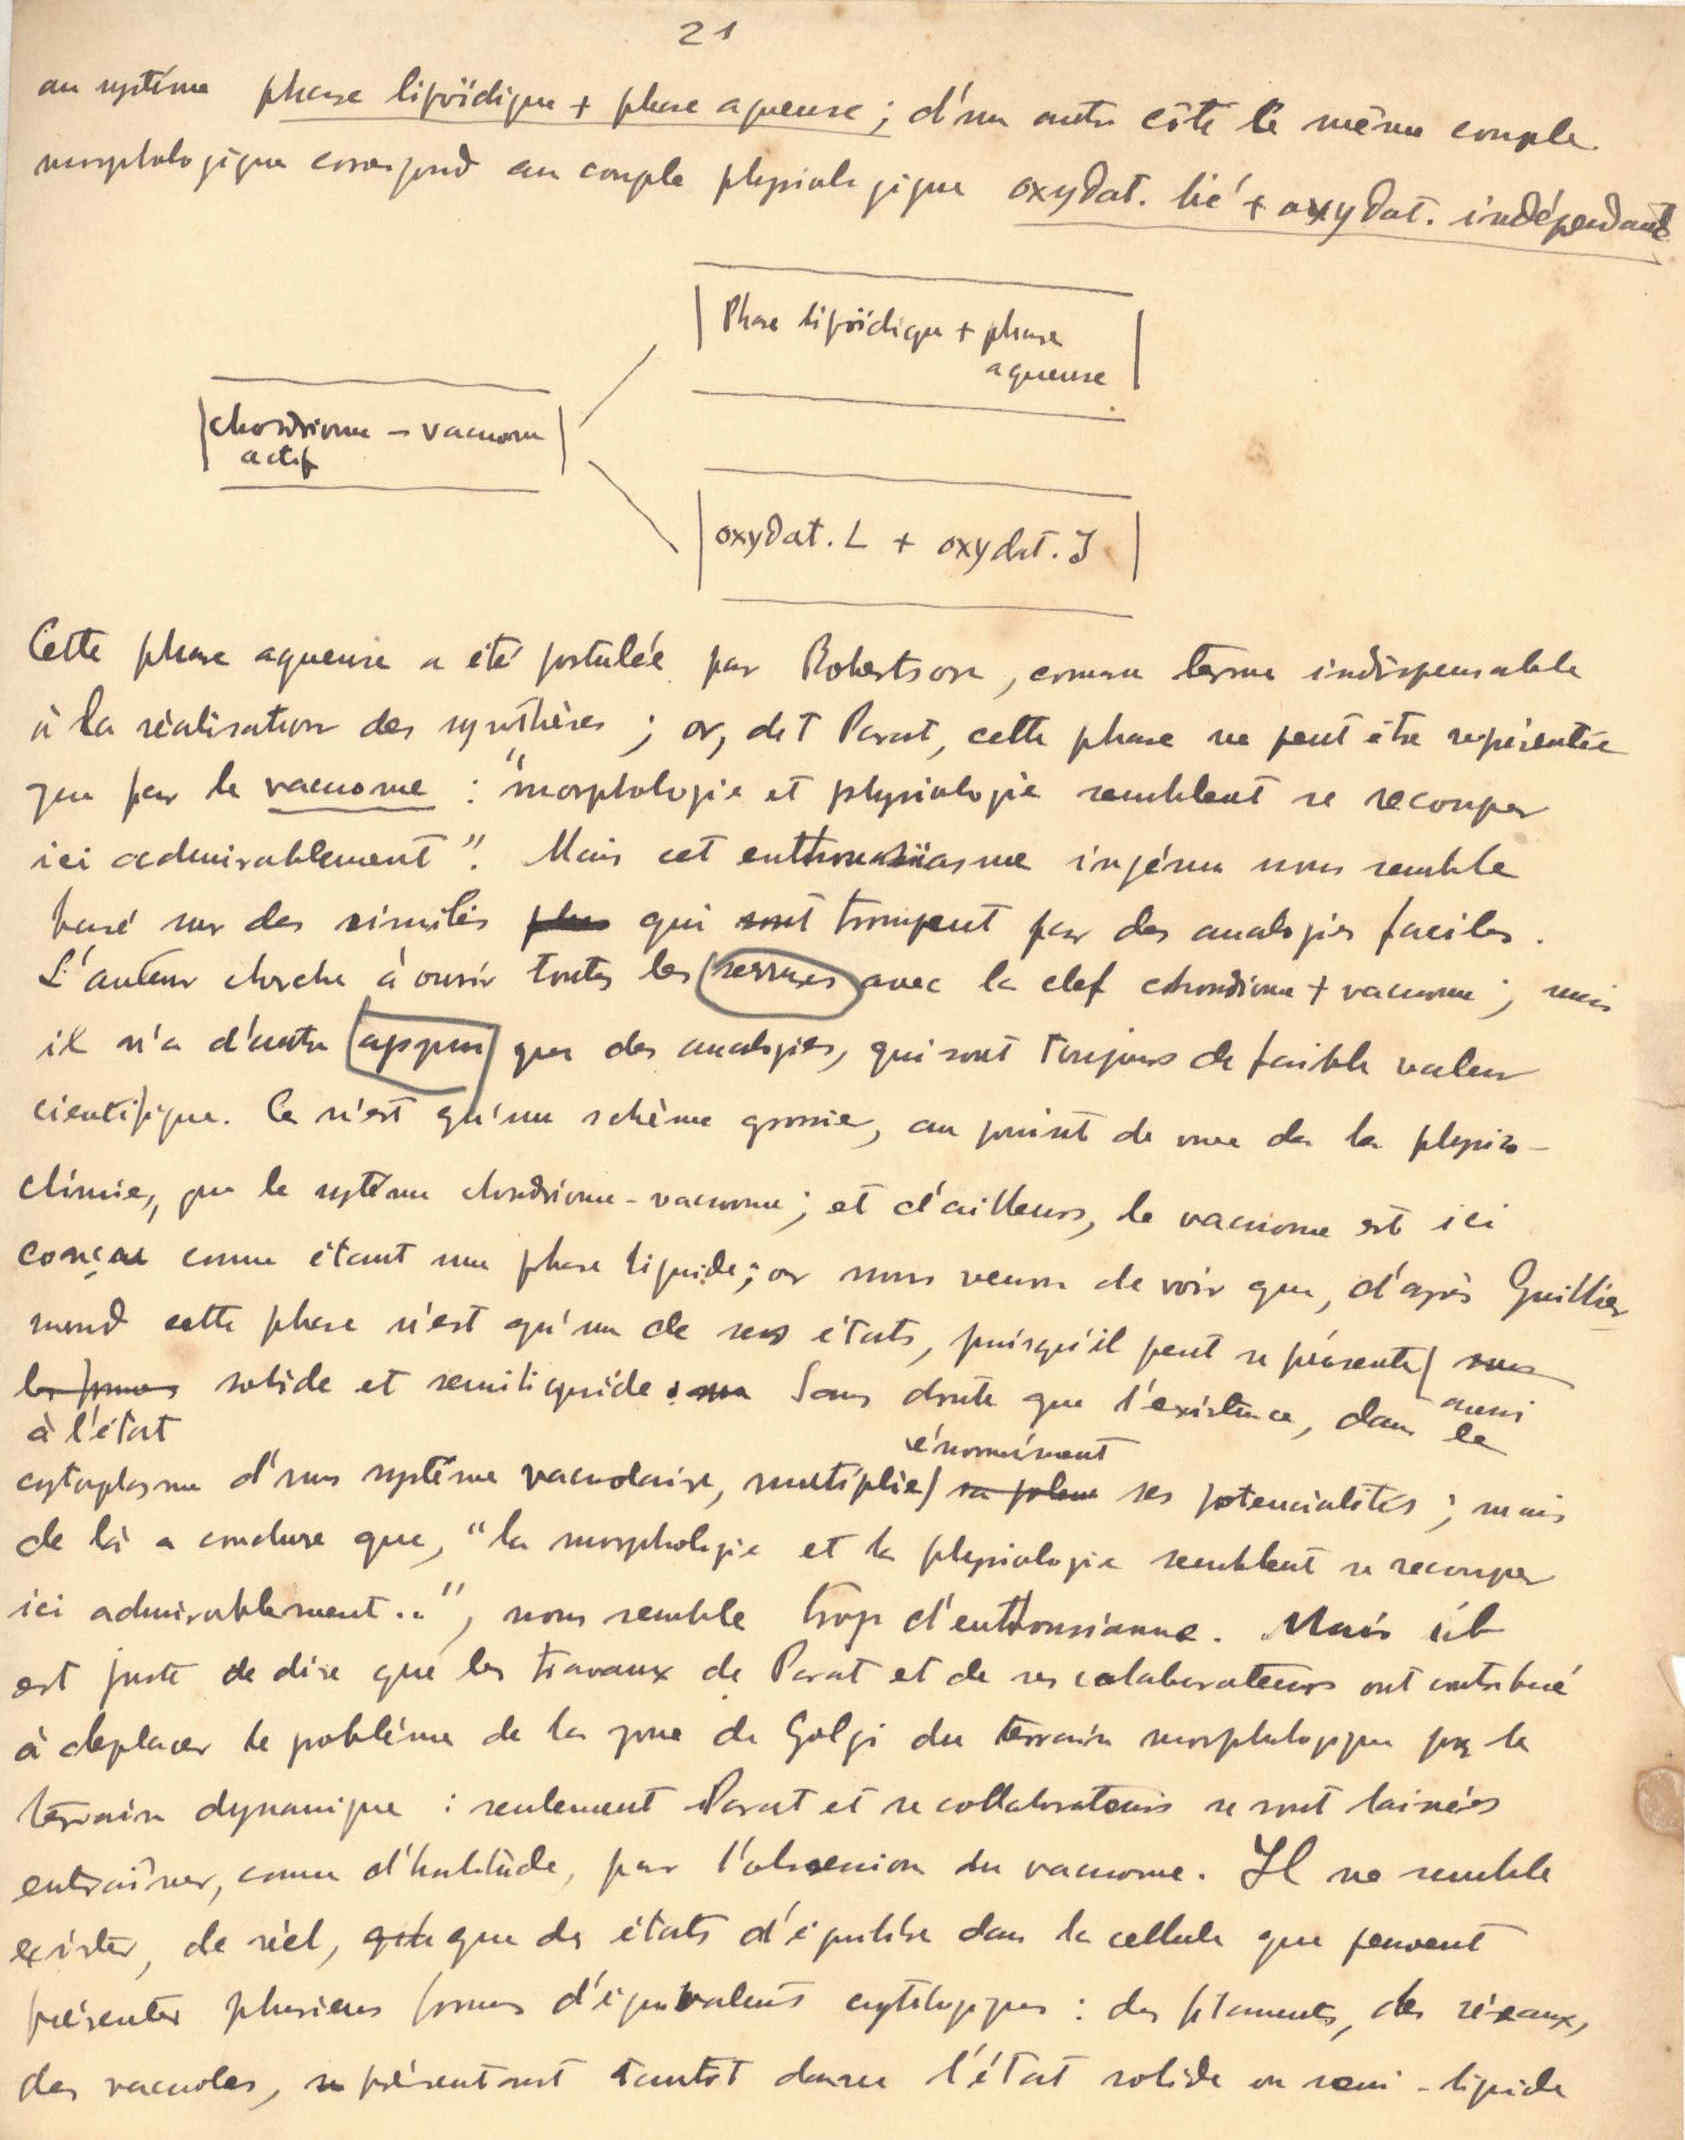 21
au système phase lipoïdique + phase aqueuse ; d'un autre côté le même couple
morphologique correspond au couple physiologique oxydat. lié + oxydat. indépendante
Phase lipoïdique + phase
aqueuse
chondriome - vacuome
actif
oxydat. L + oxydat. I
Cette phase aqueuse a été postulée par Robertson, comme terme indispensable
à la réalisation des synthèses ; or, dit Parat, cette phase ne peut être représentée
que par le vacuome : "morphologie et physiologie semblent se recouper
ici admirablement". Mais cet enthousiasme ingénu nous semble
basé sur des similis qui trompent par des analogies faciles.
L'auteur cherche à ouvrir toutes les serrures avec la clef chondriome + vacuome ; mais
il n'a d'autre appui que des analogies, qui sont toujours de faible valeur
cientifique. Ce n'est qu'un schème grossier, au point de vue de la physico-
chimie, que le système chondriome-vacuome ; et d'ailleurs, le vacuome est ici
conçu comme étant une phase liquide ; or nous venons de voir que, d'après Guillier
mond cette phase n'est qu'un de ses états, puisqu'il peut se présenter aussi
à l'état solide et semiliquide. Sans doute que l'existence, dans le
cytoplasme d'un système vacuolaire, multiplie énormément ses potencialités ; mais
de là a conclure que, "la morphologie et la physiologie semblent se recouper
ici admirablement..", nous semble trop d'enthousiasme. Mais il
est juste de dire que les travaux de Parat et de ses colaborateurs ont contribué
à deplacer le problème de la zone de Golgi du terrain morphologique pour le
terrain dynamique : seulement Parat et se collaborateurs se sont laissés
entraîner, comme d'habitude, par l'obsession du vacuome. Il ne semble
exister, de réel, que des états d'équilibre dans la cellule que peuvent
présenter plusieurs formes d'équivalents cytologiques : des filaments, des réseaux,
des vacuoles, se présentant tantôt dans l'état solide ou semi-liquide